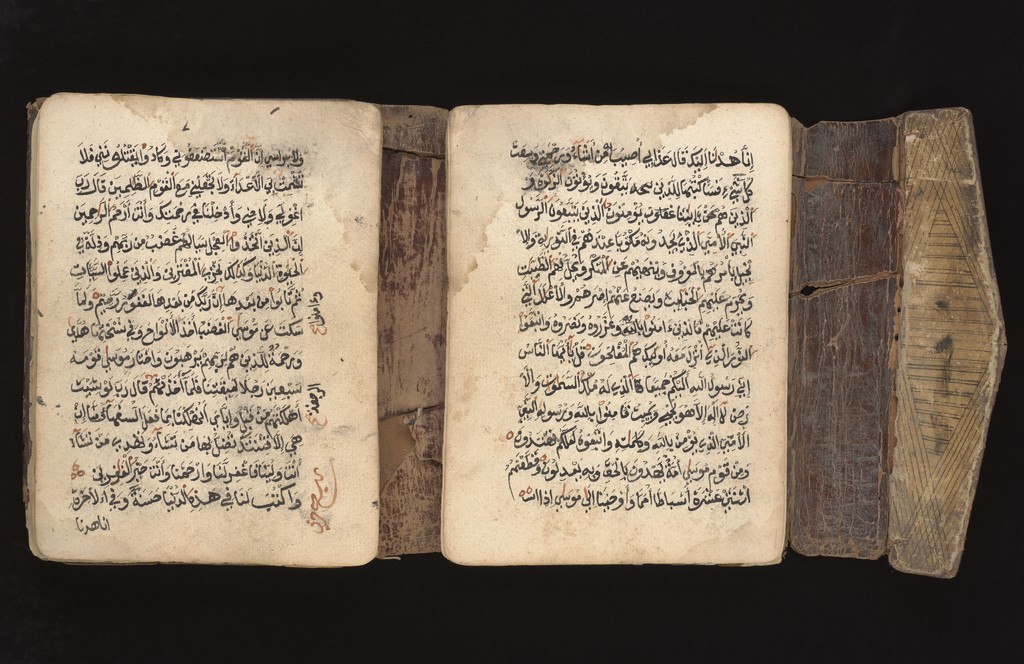 ان القوم استضعفوني وكادوا يقتلونني فلا
تشمت بي الاعداء ولا تجعلني مع القوم الظلمين قال رب
اغفر لي ولاخي وأدخلنا في رحمتك وأنت أرحم الراحمين
إن الذين اتخذوا العجل سينالهم غضب من ربهم وذلة في
الحيوة الدنيا وكذلك نجزي المفترين والذين عملوا السيئات
ثم تابوا من بعدها إن ربك من بعدها لغفور رحيم ولما
سكت عن موسى الغضب أخذ الألواح وفي نسختها هدى
ورحمة للذين هم لربهم يرهبون واختار موسى قومه
سبعين رجلا لميقتنا فلما أخذتهم قال رب لو شئت
أهلكتهم من قبل وإياي أتهلكنا بما فعل السفهاء منا إن
هي إلا فتنتك تضل بها من تشاء وتهدي من تشاء
أنت ولينا فاغفر لنا وارحمنا وأنت خير الغفرين
واكتب لنا في هذه الدنيا حسنة وفي الاخرة
انا هدنا
الرجفة صح
إنا هدنا إليك قال عذابي أصيب به من أشاء ورحمتي وسعت
كل شيء فسأكتبها للذين يتقون ويؤتون الزكوة و
الذين هم بايتنا يؤمنون الذين يتبعون الرسول
النبي الأمي الذي يجدونه مكتوبا عندهم في التورية والا
نجيل يأمرهم بالمعروف وينهيهم عن المنكر ويحل لهم الطيبت
ويحرم عليهم الخبائث ويضع عنهم إصرهم والأغلل التي
كانت عليهم فالذين امنوا به وعزروه ونصروه واتبعوا
النور الذي أنزل معه أوليك هم المفلحون قل يأيها الناس
إني رسول الله إليكم جميعا الذي له ملك السموت والأ
رض لا إله إلا هو يحيي ويميت فامنوا بالله ورسوله النبي
الأمي الذي يؤمن بالله وكلمته واتبعوه لعلكم تهتدون
ومن قوم موسى أمة يهدون بالحق وبه يعدلون وقطعنهم
اثنتي عشرة أسباطا أمما وأوحينا إلى موسى إذ استسـ